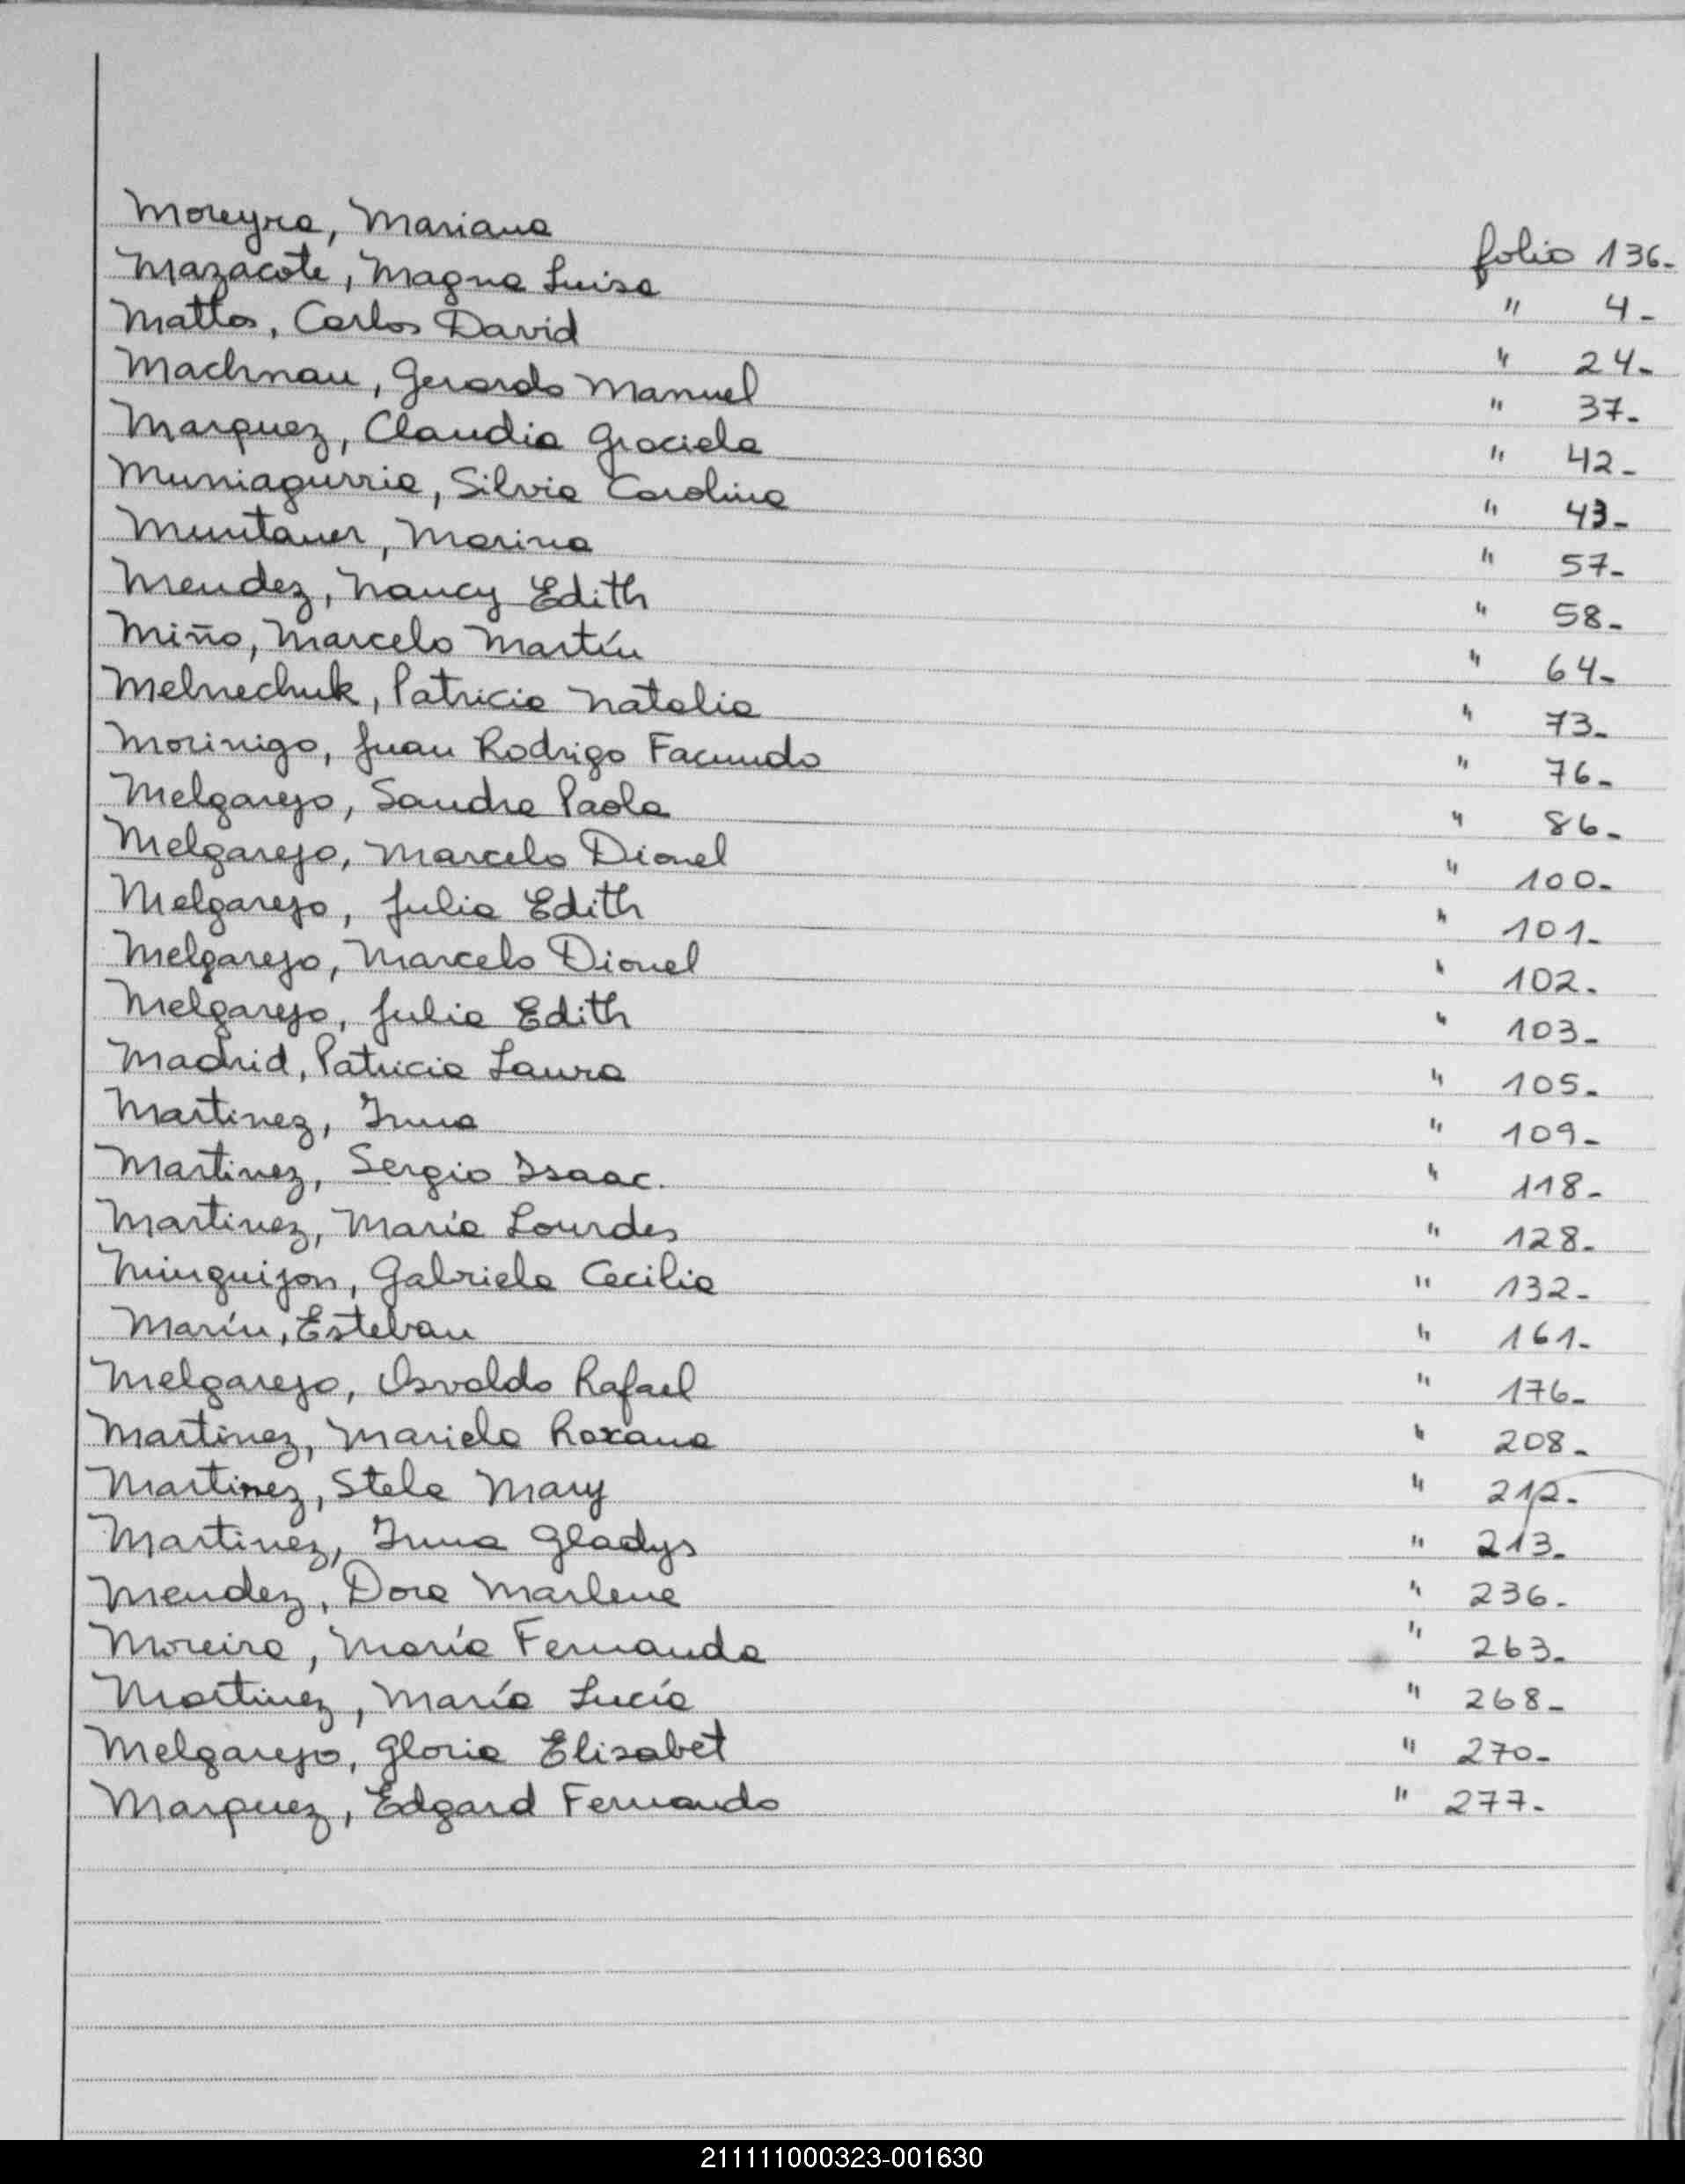 Moreyra, Mariana folio 136-
Mazacote, Magna Luisa " 4-
Mattos, Carlos David " 24-
Machnau, Gerardo Manuel " 37-
Marquez, Claudia Graciela " 42-
Muniagurria, Silvia Carolina " 43-
Muntaner, Marina " 57-
Mendez, Nancy Edith " 58-
Miño, Marcelo Martín " 64-
Melnechuk, Patricia Natalia " 73-
Morinigo, Juan Rodrigo Facundo " 76-
Melgarejo, Sandra Paola " 86-
Melgarejo, Marcelo Dionel " 100-
Melgarejo, Julia Edith " 101-
Melgarejo, Marcelo Dionel " 102-
Melgarejo, Julia Edith " 103-
Madrid, Patricia Laura " 105-
Martinez, Irma " 109-
Martinez, Sergio Isaac. " 118-
Martinez, María Lourdes " 128-
Minguijon, Gabriela Cecilia " 132-
Marín, Esteban " 161-
Melgarejo, Osvaldo Rafael " 176-
Martinez, Mariela Roxana " 208-
Martinez, Stela Mary " 212-
Martinez, Irma Gladys " 213-
Mendez, Dora Marlene " 236-
Moreira, María Fernanda " 263-
Martinez, María Lucía " 268-
Melgarejo, Gloria Elisabet " 270-
Marquez, Edgard Fernando " 277-
211111000323-001630